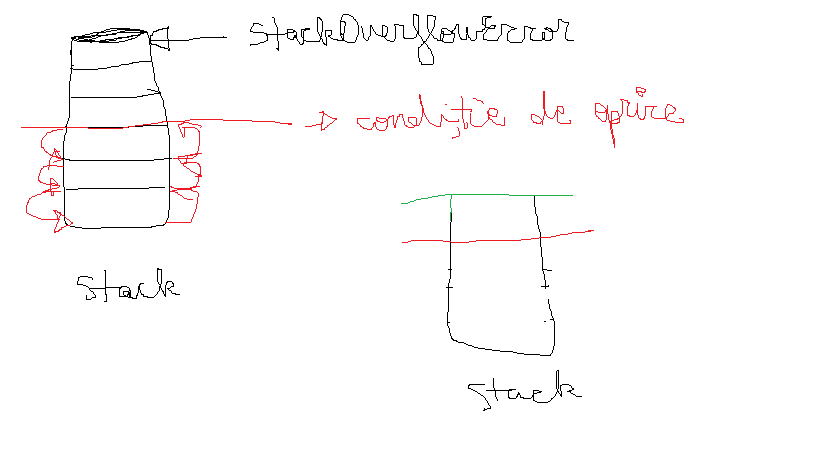 StackOverflowError
condiție de oprire
Stack
Stack